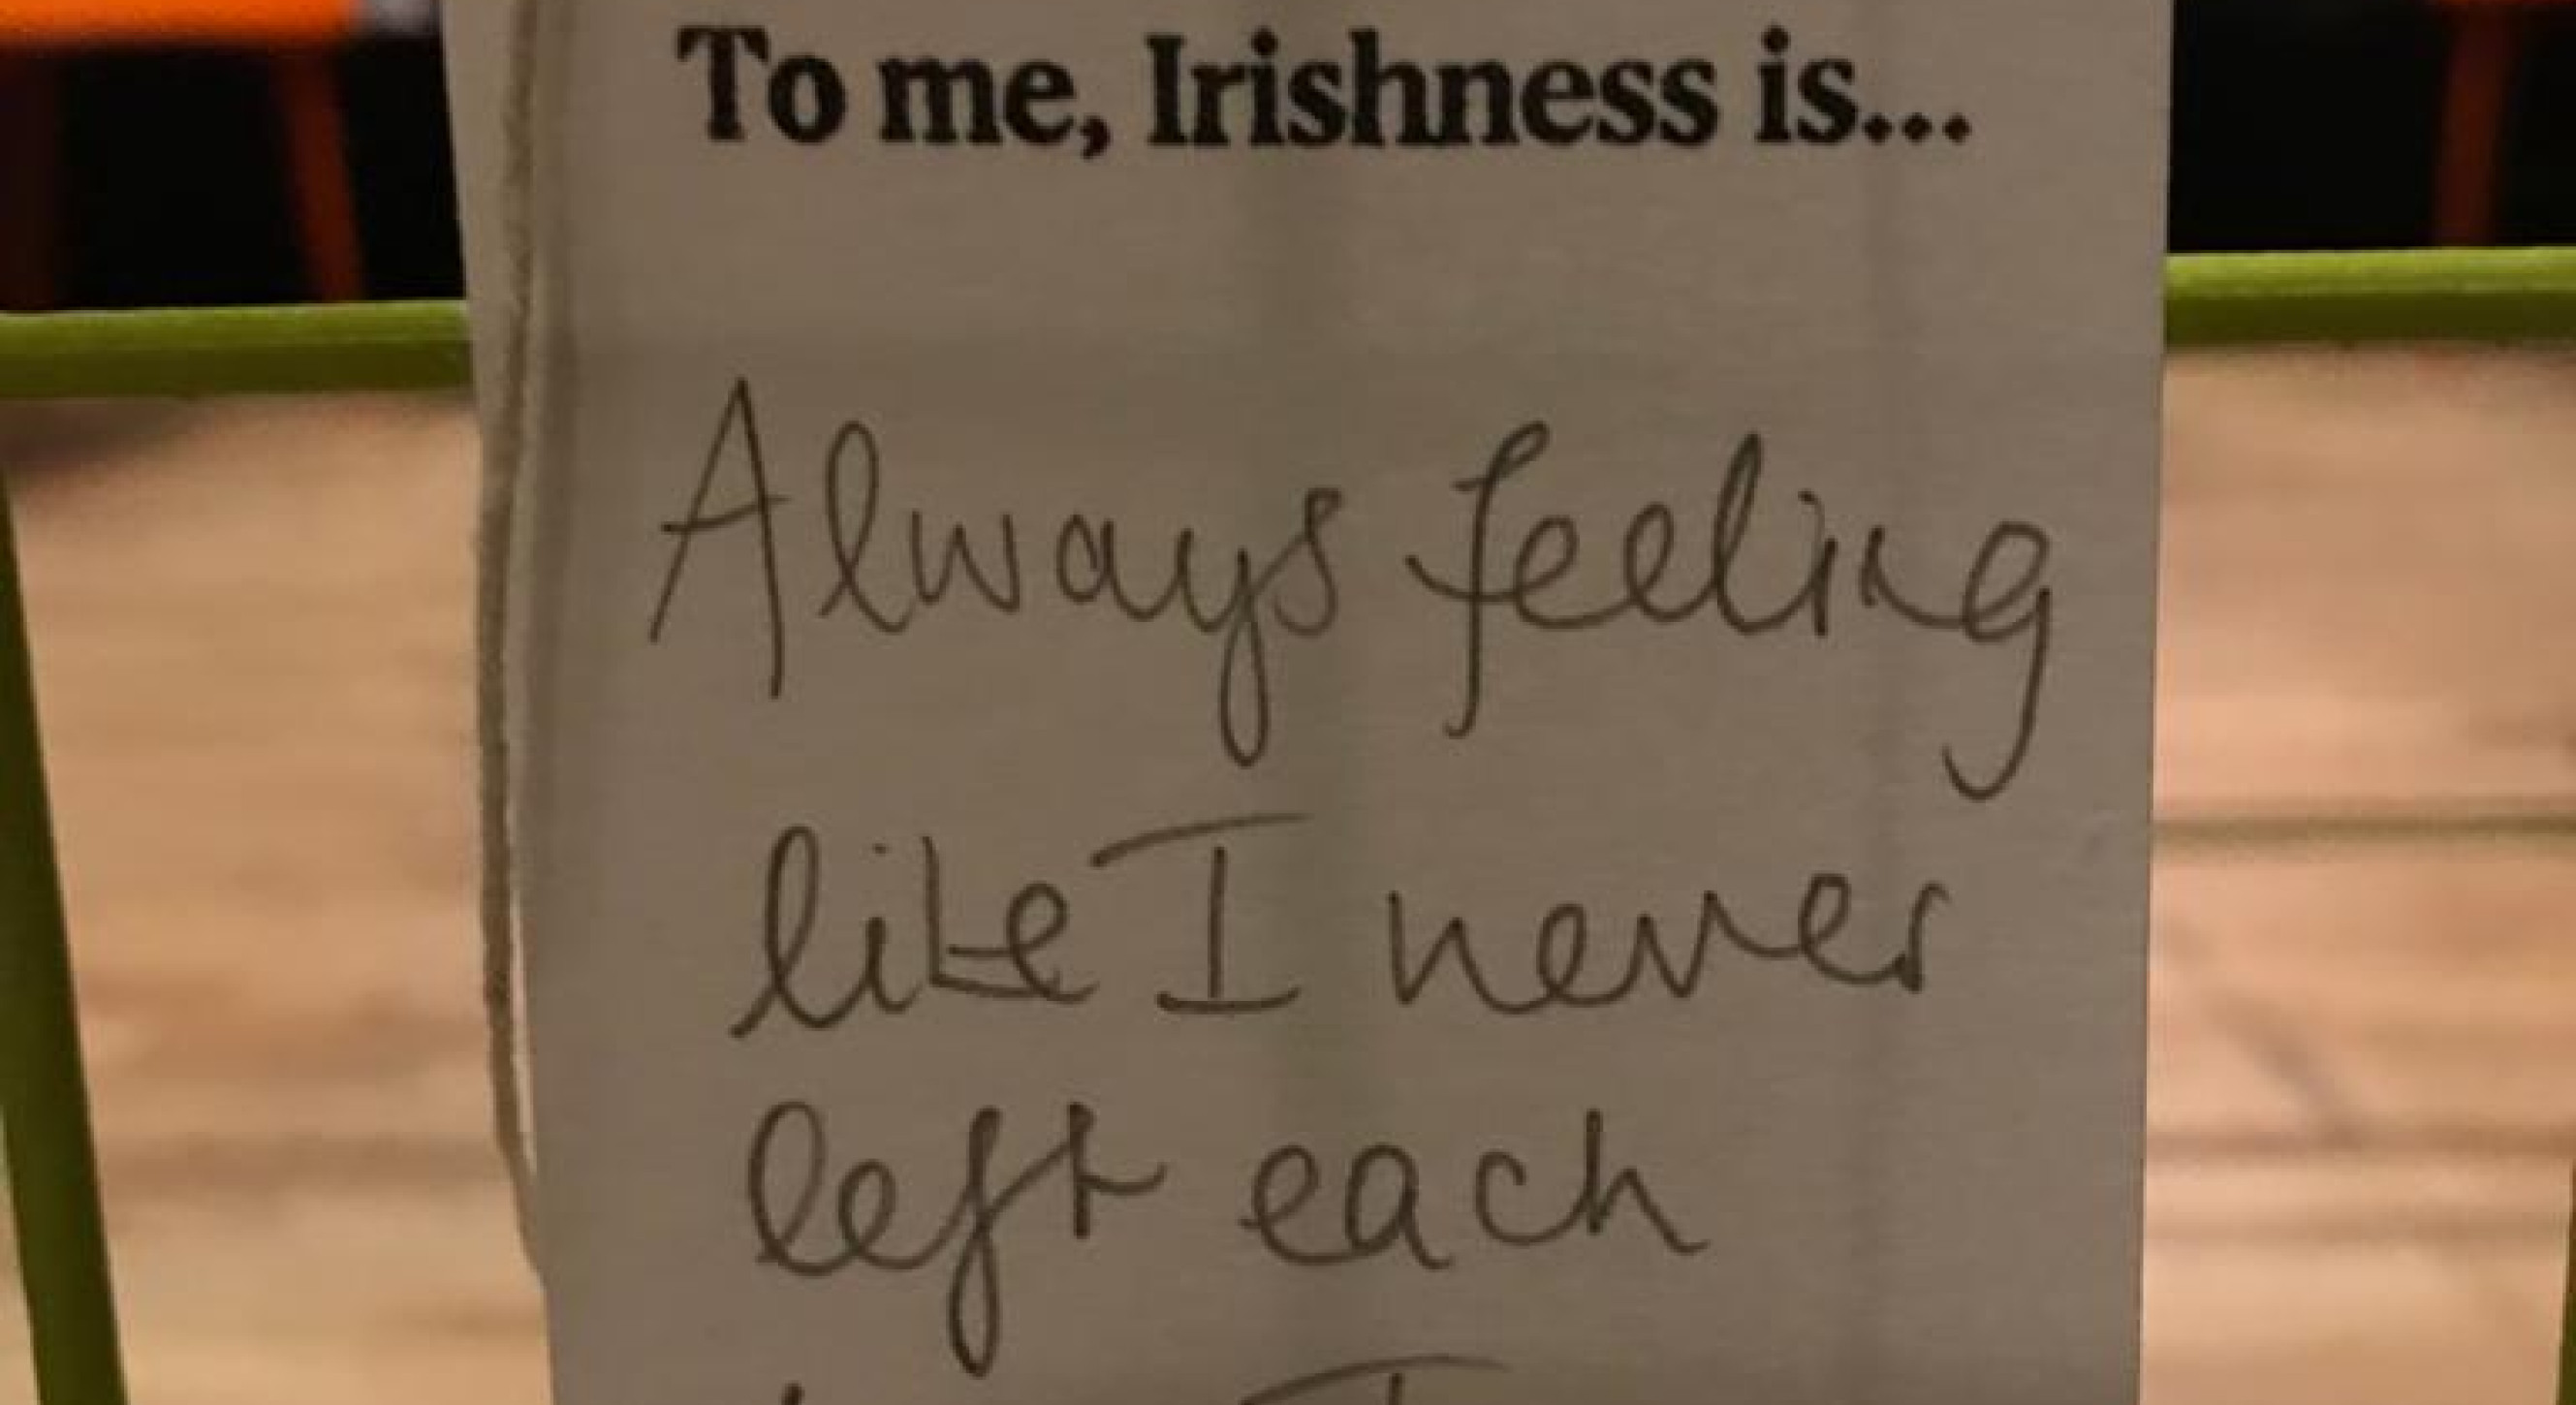 To me, Irishness is...
Always feeling
like I never
left each